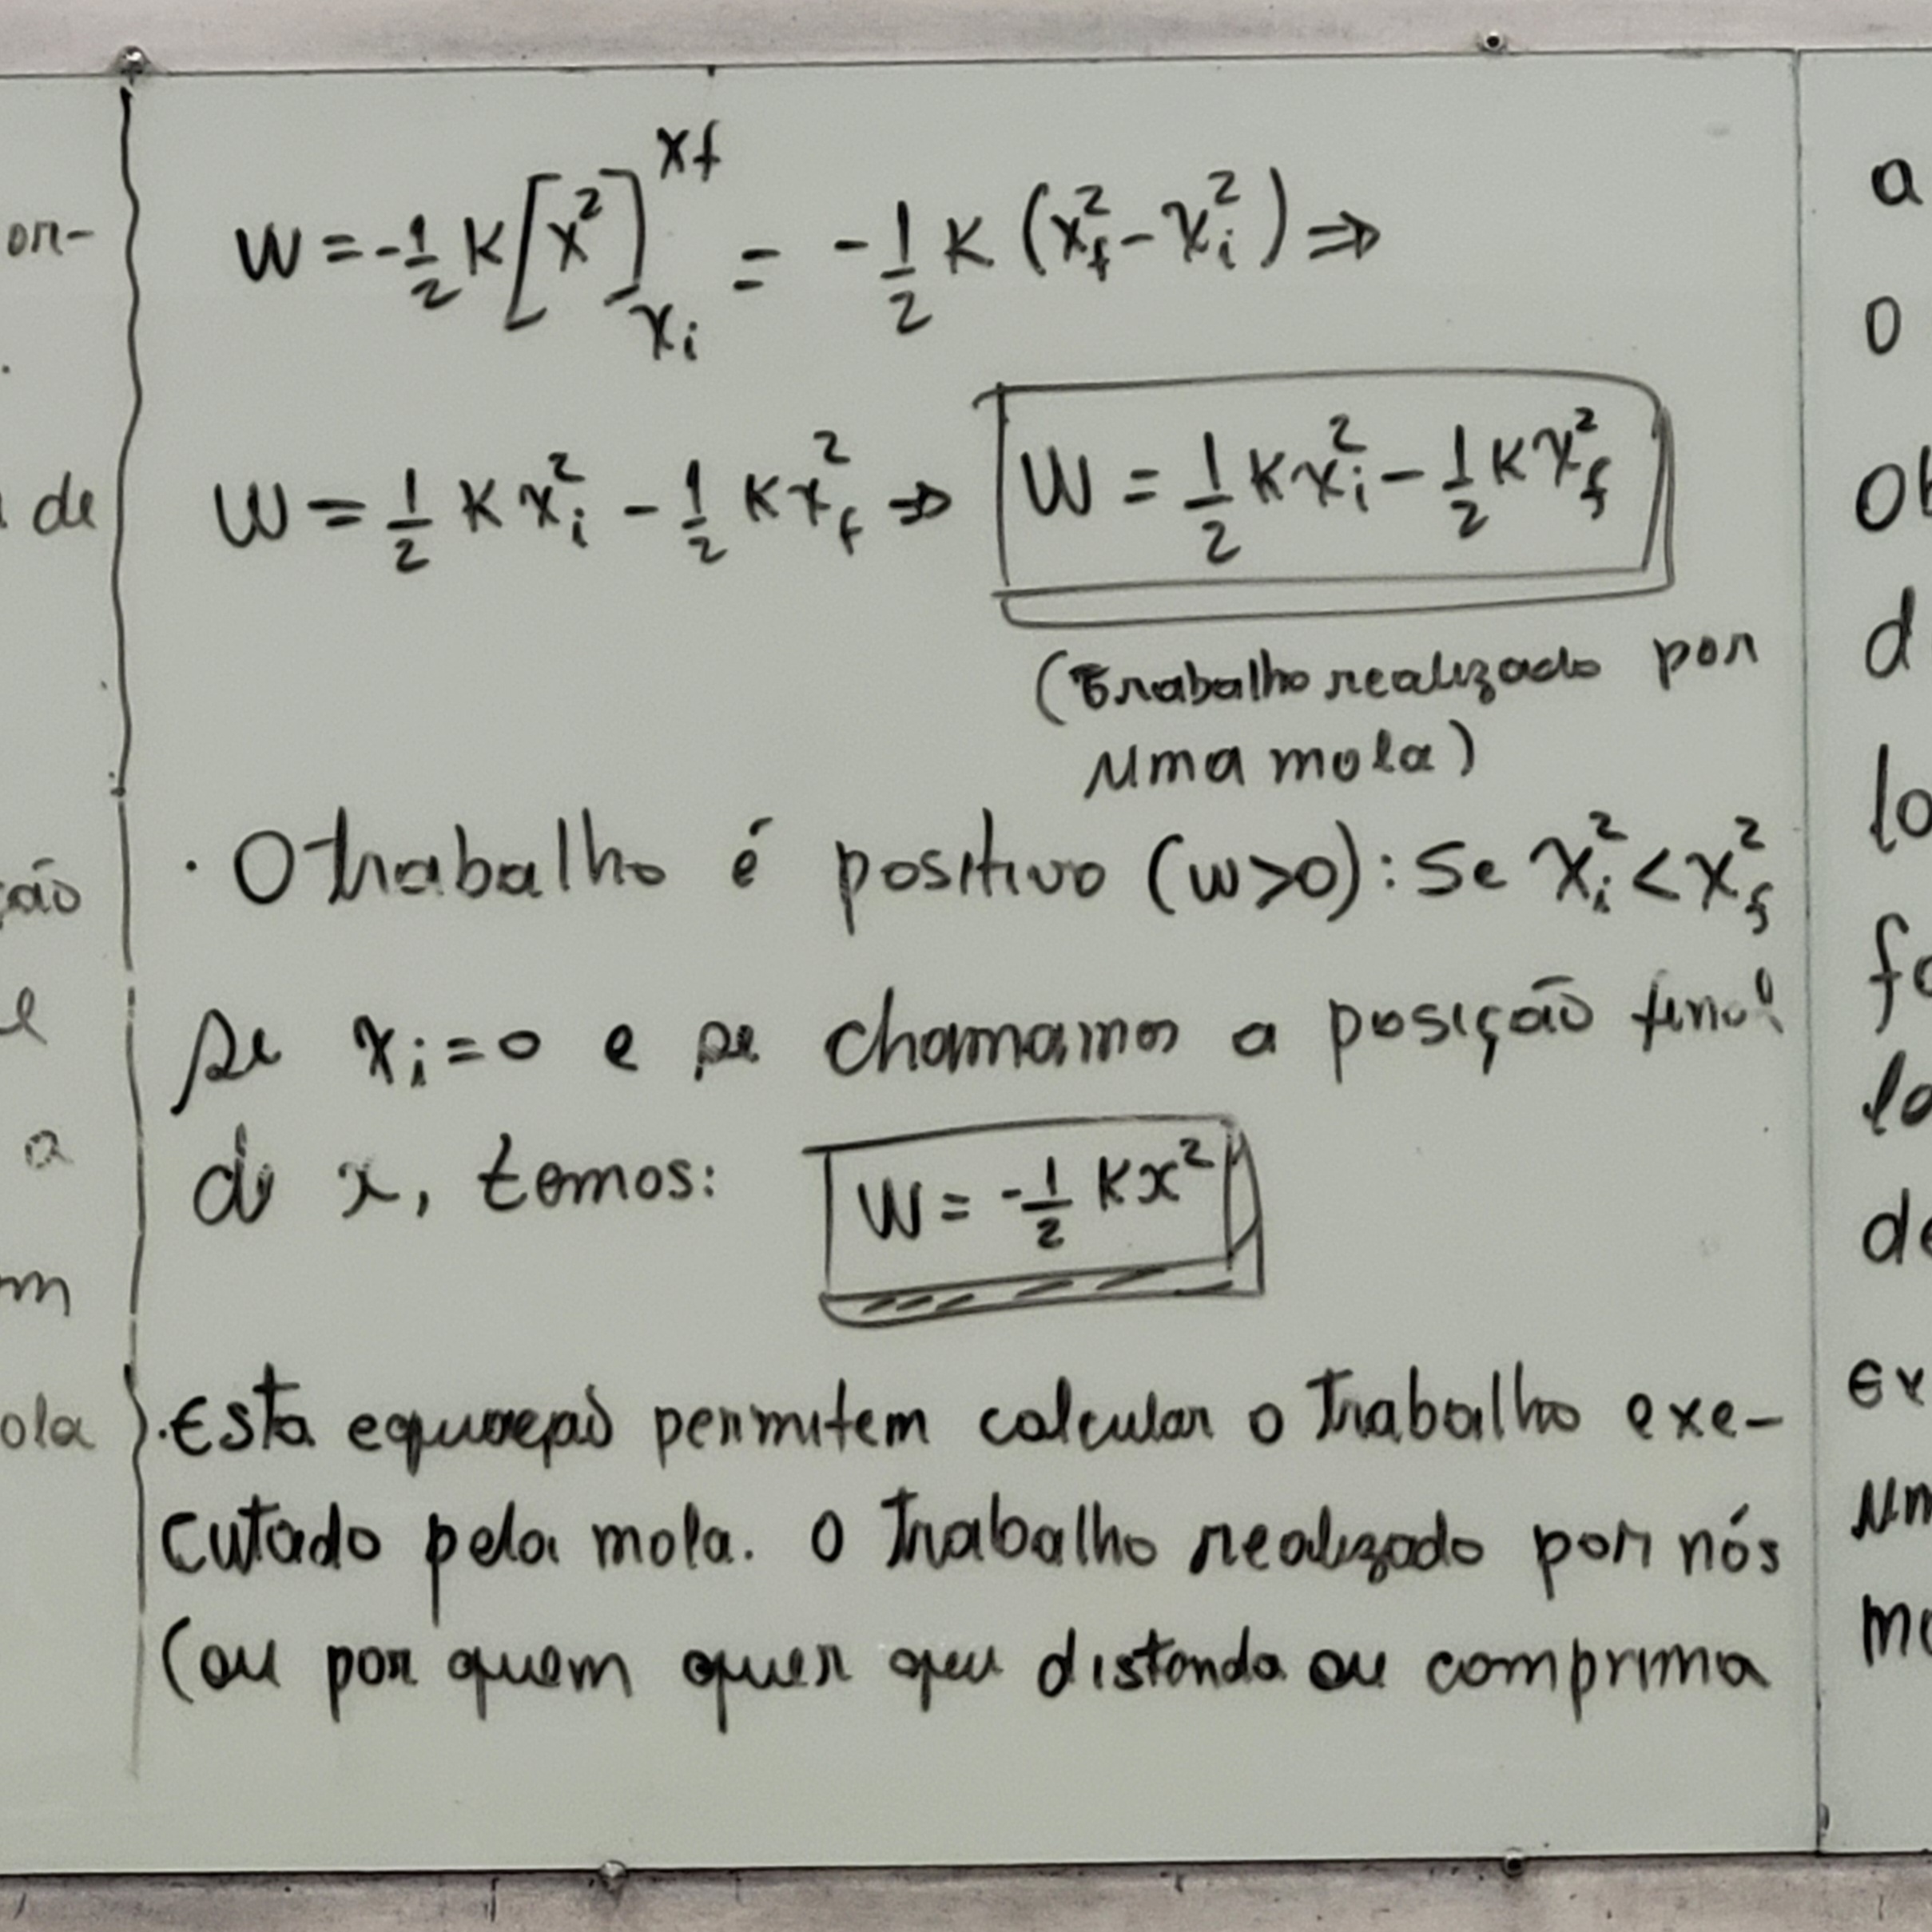 W = -1/2 K [x²]_{xi}^{xf} = -1/2 K (x_f² - x_i²) ⇒
W = 1/2 K x_i² - 1/2 K x_f² ⇒ W = 1/2 K x_i² - 1/2 K x_f²
(trabalho realizado por
uma mola)
· O trabalho é positivo (w>0): Se x_i² < x_f²
se x_i = 0 e se chamamos a posição final
de x, temos: W = -1/2 K x²
· Esta permitem calcular o trabalho exe-
cutado pela mola. O trabalho realizado por nós
(ou por quem quer que distenda ou comprima
on-
de
ção
e
a
m
ola
a
o
d
lo
fo
la
de
ex
um